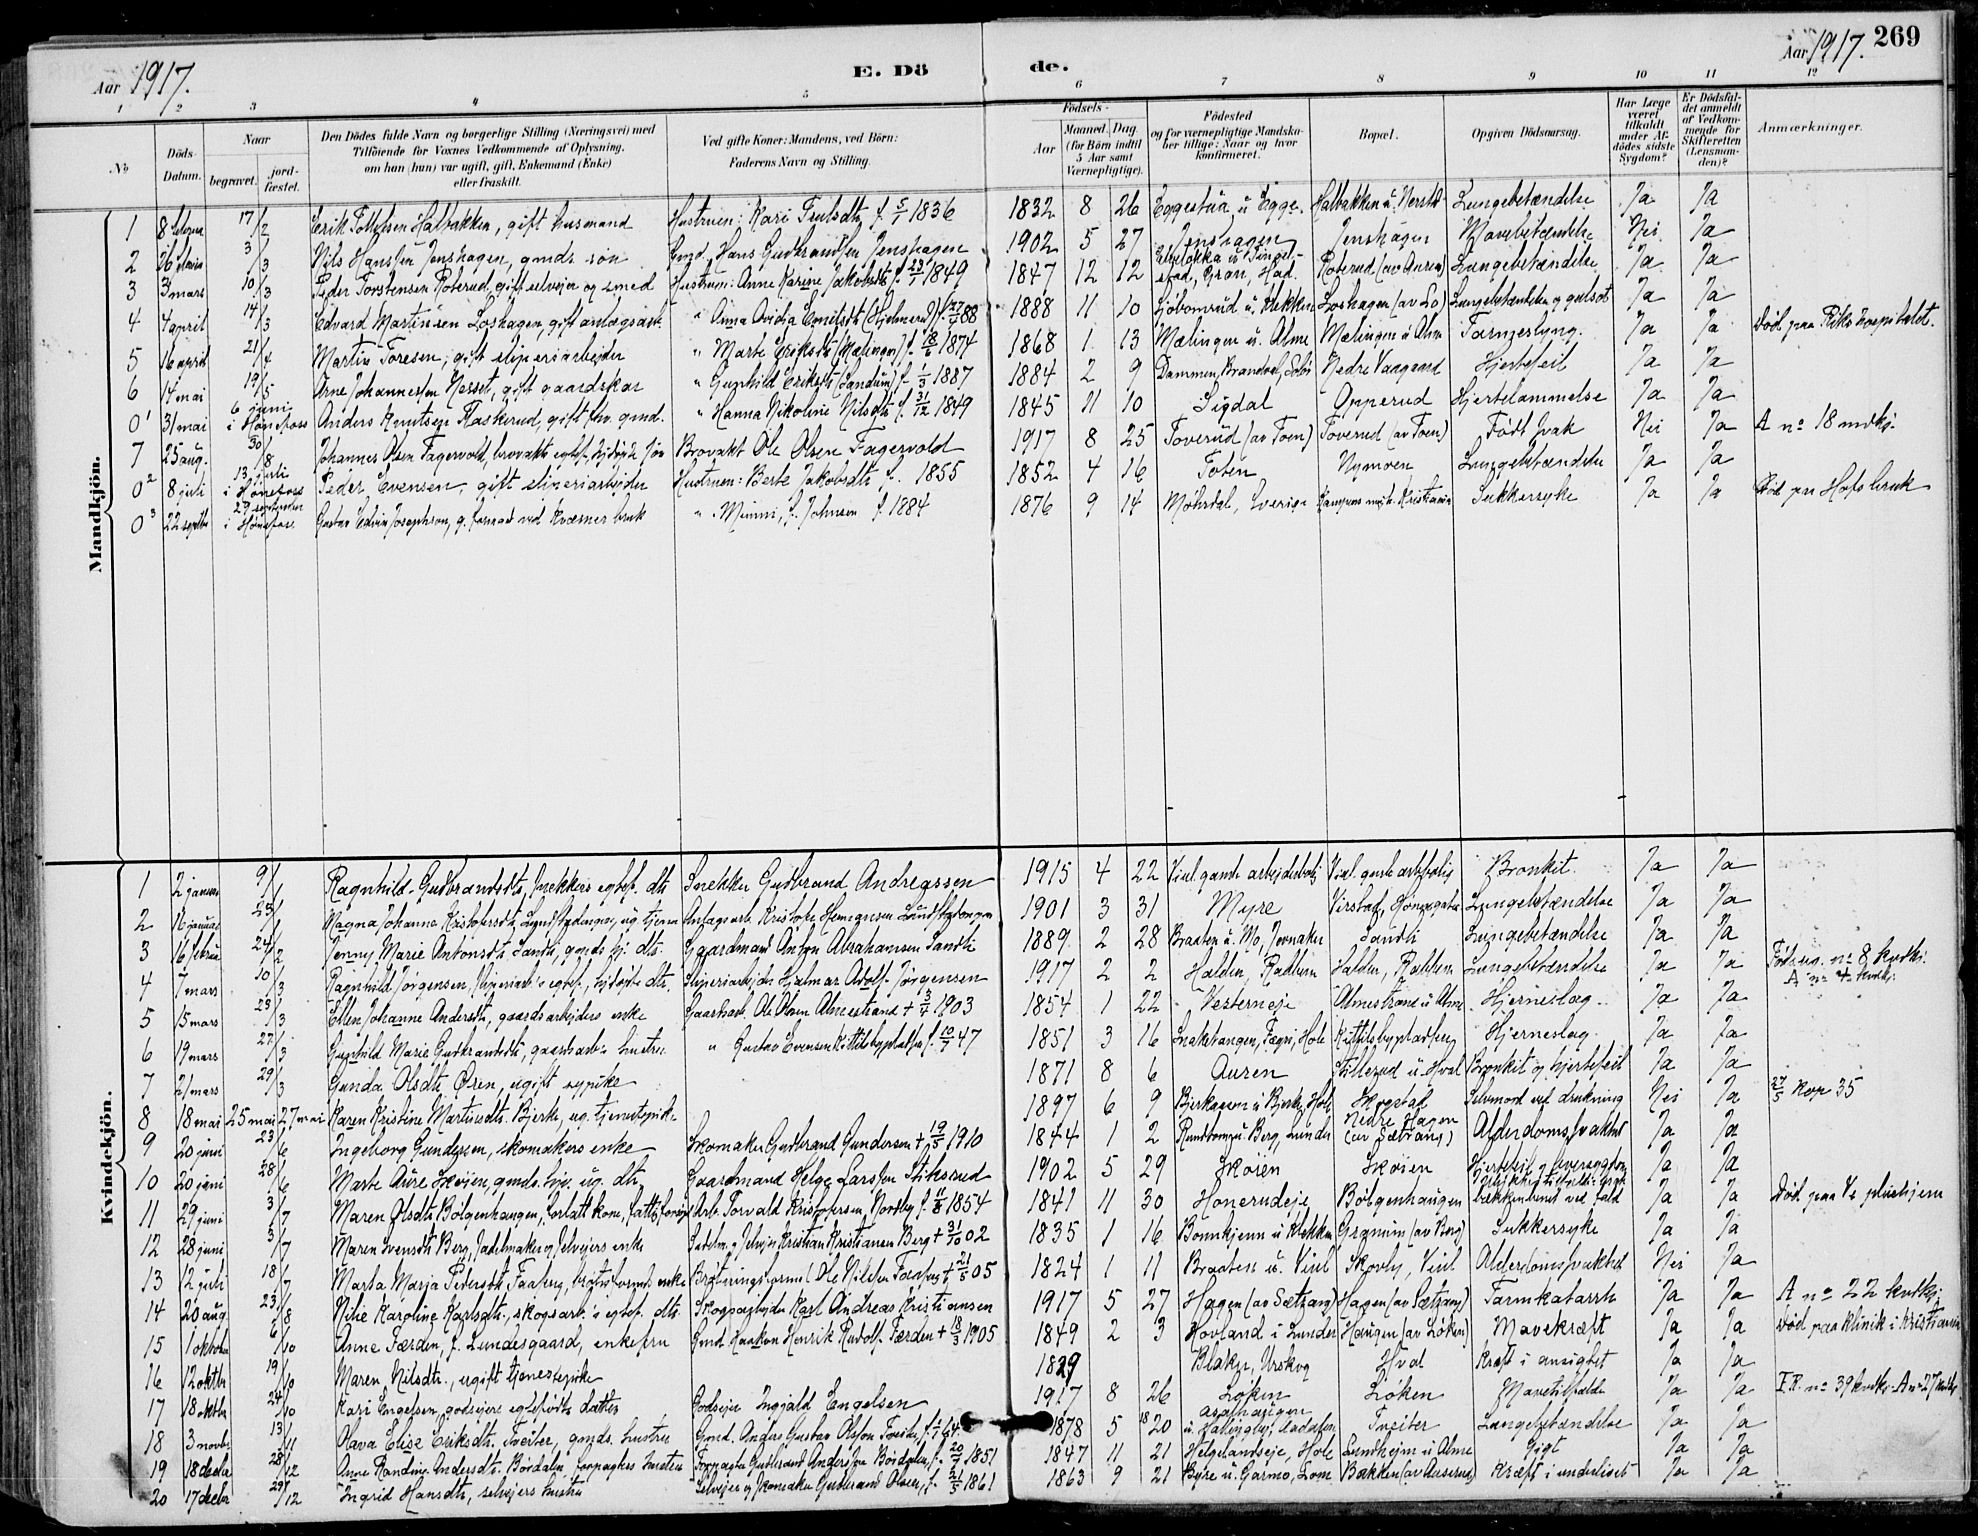 Aar 1917. E. Dö de. Aar 1917. 269
1 2 3 4 5 6 7 8 9 10 11 12
No
Döds-Datum.
Naar begravet. jordfæstet.
Den Dödes fulde Navn og borgerlige Stilling (Næringsvei) med Tilföiende for Voxnes Vedkommende af Oplysning, om han (hun) var ugift, gift, Enkemand (Enke) eller fraskilt.
Ved gifte Koner: Mandens, ved Börn: Faderens Navn og Stilling.
Födsels- Aar Maaned. Dag. (for Börn indtil 5 Aar samt Værnepligtige).
Födested og for værnepligtige Mandskaber tillige: Naar og hvor konfirmeret.
Bopæl.
Opgiven Dödsaarsag.
Har Læge været tilkaldt under Afdödes sidste Sygdom?
Er Dödsfaldet anmeldt af Vedkommende for Skifteretten (Lensmanden)?
Anmærkninger.
Mandkjön.
1 8 17/2 Erik Halbakken, gift husmand Hustruen: Kari f. 5/1 1836 1832 8 26 Eggestua u Egge. Halbakken u. Lungebetændelse Ja Ja
2 26 3/3 Nils Hanssen Jenshagen, gmds søn Hans Gudbrandsen Jenshagen 1902 5 27 Jenshagen Jenshagen Mavebetændelse Nei Ja
3 3 mars 10/3 Peder Torstensen Roterud, gift selveier og smed Hustruen: Anne Karine Jakobsdt. f. 23/7 1849 1847 12 12 Gran, Had. Roterud (av Auren) Lungebetændelse Ja Ja
4 4 april 14/3 Edvard Martinsen Loshagen, gift anlægsarb. " Anna Ovidia (Hjelmerud) f. 27/7 88 1888 11 10 u. Klekken Loshagen (av Lo) Lungebetændelse og gulsot Ja Ja Død paa Rikshospitalet.
5 16 april 21/4 Martin Toresen, gift sliperiarbeider " Marte Eriksdt. (Mælingen) f. 18/6 1874 1868 1 13 Mælingen u. Alme Mælingen u Alme Tarmslyng. Ja Ja
6 14 mai 19/5 Arne Johannessen Nesset, gift gaardskar " Gunhild Eriksdt. (Sandum) f. 1/3 1887 1884 2 9 Dammen, Brandval, Solør Nedre Vaagaard Hjertefeil Ja Ja
0¹ 31 mai 6 juni i Hønefoss Anders Knutsen Flaskerud, gift fhv. gmd. " Hanna Nikoline Nilsdt. f. 31/12 1849 1845 11 10 Sigdal Opperud Hjertelammelse Ja Ja
7 25 aug. 30/8 Johannes Olsen Fagervold, brovakts egtef. søn Brovakt Ole Olsen Fagervold 1917 8 25 Toverud (av Toen) Toverud (av Toen) Født svak Nei Ja A no 18 mdkj.
0² 8 juli 13 juli i Hønefoss Peder Evensen, gift sliperiarbeider Hustruen: Berte Jakobsdt f. 1855 1852 4 16 Toten Nymoen Lungebetændelse Ja Ja
0³ 22 septbr 29 september i Hønefos Gustav Edvin Josephson, g. formand ved Kværner bruk " Minni, f. Johnsen f. 1884 1876 9 14 Sverige Kristiania Sukkersyke Ja Ja Død paa Hofs bruk
Kvindekjön.
1 2 januar 9/1 Ragnhild Gudbrandsdt., snekkers egtef. dt. Snekker Gudbrand Andreassen 1915 4 22 Viul gamle arbeiderbolig Viul gamle Bronkit. Ja Ja
2 16 januar 23/1 Magna Johanne Kristofersdt. ug. tjener Anlægsarb. Kristofer 1901 3 31 Myre Virstad, Hønegaten Lungebetændelse Ja Ja
3 16 februar 24/2 Jenny Marie Antonsdt. Sandli, gmds hj. dt. Gaardmand Anton Abrahamsen Sandli 1889 2 28 Braaten u. Mo, Jevnaker Sandli Lungebetændelse Ja Ja
4 7 mars 10/3 Ragnhild Jørgensen, egtef. hjdøpt dt. Sliperiarbeider Hjalmar Adolf Jørgensen 1917 2 2 Halden Halden Lungebetændelse Ja Ja no 8 kvdkj. A no 4 kvdkj.
5 15 mars 23/3 Ellen Johanne Andersdt., gaardsarbeiders enke Gaardsarb. Ole Olsen Almestrand + 3/4 1903 1854 1 22 Vesterneje Almestrand u Alme Hjerneslag. Ja Ja
6 19 mars 27/3 Gunhild Marie Gudbrandsdt., gaardsarb. hustru " Gustav Evensen Kittilsbyplads f. 10/7 47 1851 3 16 Hole Kittilsbypladsen Hjerneslag Ja Ja
7 21 mars 29/3 Gunda Olsdt. Øren, ugift sypike 1871 8 6 Auren Tillerud u. Hval Bronkit og hjertefeil Ja Ja
8 18 mai 25 mai 27 mai Karen Kristine Martinsdt. Bjerke, ug. tjenestepike 1897 6 9 Bjerkagen u Bjerke, Hole Skogstad Selvmord ved drukning Nei Ja 27/5 kop 35
9 20 juni 23/6 Ingeborg Gundersen, skomakers enke Skomaker Gudbrand Gundersen + 19/5 1910 1844 1 2 u. Berg, Lunder Nedre Hagen (av Sætrang) Alderdomssvakhet Ja Ja
10 20 juni 28/6 Marte Aure Skøien, gmds. hjv. ug. dt. Gaardmand Helge Larssen Stiksrud 1902 5 29 Skøien Skøien Hjertefeil og Ja Ja
11 29 juni 3/7 Maren Olsdt. Bølgenhaugen, forlatt kone, fattigforsørget Arb. Torvald Kristofersen, Nordby f. 11/8 1854 1841 11 30 Honerudeje Bølgenhaugen bækkenbrud ved fald Ja Ja Død paa Ve pleiehjem
12 28 juni 3/7 Maren Svensdt Berg, sadelmaker og selveiers enke Sadelm. og selveier Kristian Kristiansen Berg + 31/10 02 1835 1 16 Bonnkjenn u Klekken Granum (av Berg) Sukkersyke Ja Ja
13 12 juli 18/7 Marta Marja Pedersdt. Faaberg, enke Ole Nilsen + 21/5 05 1824 1 11 Braaten u. Viul Skovly, Viul Alderdomssvakhet Nei Ja
14 20 aug 23/8 Nilie Karoline Karlsdt., skogsarb.s egtef. dt. Skogsarbeider Karl Andreas Kristiansen 1917 5 27 Hagen (av Sætrang) Hagen (av Sætrang) Tarmkatarrh Ja Ja A no 22 kvdkj.
15 1 oktober 6/10 Anne Færden, f. Lundesgaard, enkefru Gmd. Haakon Henrik Rudolf Færden + 18/3 1905 1849 2 3 Hovland i Lunder Haugen (av Løken) Mavekræft Ja Ja Død paa klinik i Kristiania
16 12 oktbr 19/10 Maren Nilsdt., ugift tjenestepike 1829 Blaker, Urskog Hval Kræft i ansigtet Ja Ja
17 18 oktbr 24/10 Kari Engelsen, godseiers egtefødte datter Godseier Ingjald Engelsen 1917 8 26 Løken Løken Mavetilfælde Ja Ja F.R. no 39 kvdkj. A no 27 kvdkj.
18 3 novbr 13/11 Olava Elise Eriksdt. Tveiter, gmds. hustru Gmd. Anders Gustav Olsen Tveiter, f. 64. 1878 5 20 Asphaugen u. Tveiter Lungebetændelse Ja Ja
19 18 decbr 28/12 Anne Randine Andersdt. Børdalen, forpagters hustru Forpagter Gudbrand Anderssen Børdalen, f. 20/7 1851 1847 11 21 Helgelandseje, Hole Lundhejm u Alme Gigt Ja Ja
20 17 decbr 29/12 Ingrid Hansdt., selveiers hustru Selveier og skomaker Gudbrand Olsen, f. 21/5 1861 1863 9 21 Byre u. Garmo, Lom Bakken (av Aaserud) Kræft i underlivet Ja Ja